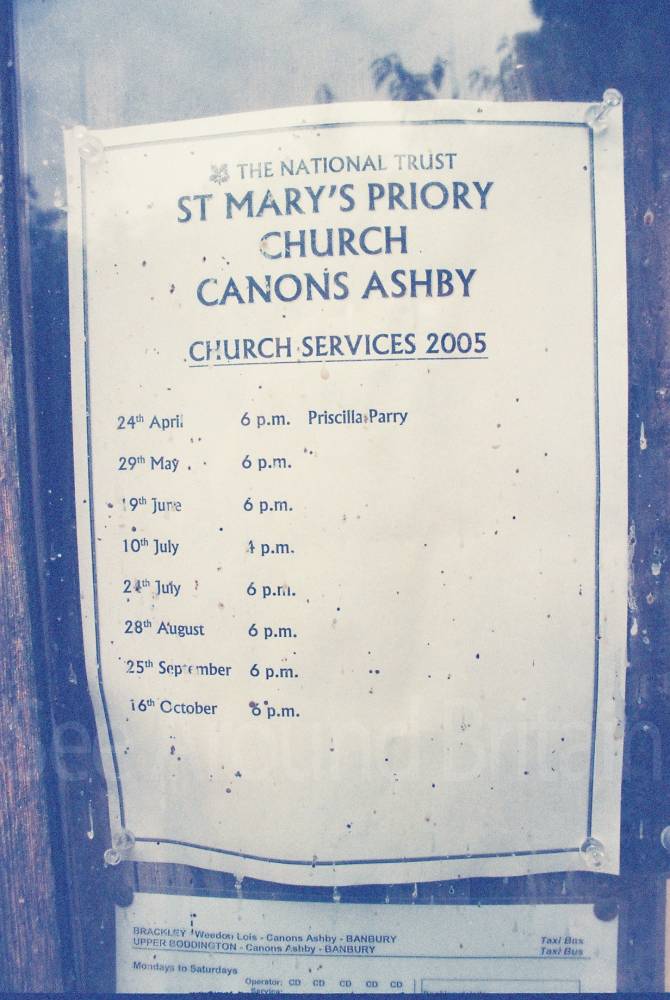 THE NATIONAL TRUST
ST MARY'S PRIORY
CHURCH
CANONS ASHBY
CHURCH SERVICES 2005
24th April 6 p.m. Priscilla Parry
29th May 6 p.m.
19th June 6 p.m.
10th July 4 p.m.
24th July 6 p.m.
28th August 6 p.m.
25th September 6 p.m.
16th October 6 p.m.
See Around Britain
BRACKLEY Weedon Lois - Canons Ashby - BANBURY Taxi Bus
UPPER BODDINGTON - Canons Ashby - BANBURY Taxi Bus
Mondays to Saturdays
Operator: CD CD CD CD CD
Service: